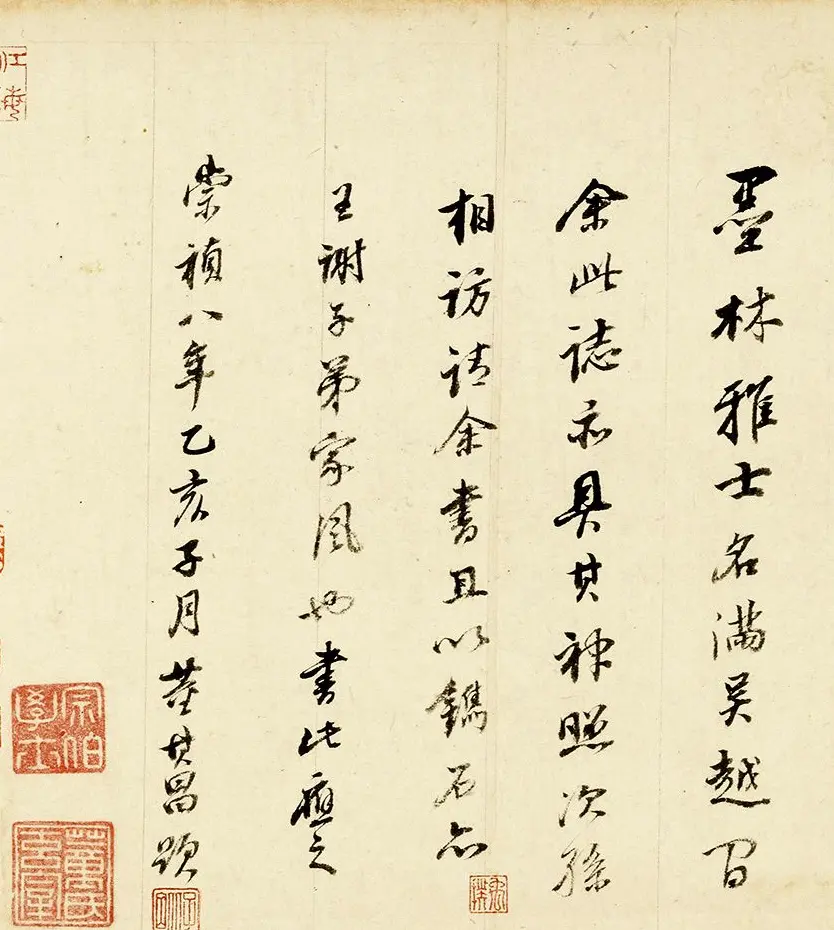 墨林雅士名滿吳越間
余此誌亦具其神照次孫
相訪請余書且以鐫石亦
王謝子弟家風也書此應之
崇禎八年乙亥子月董其昌題
宗伯學士
董氏玄宰